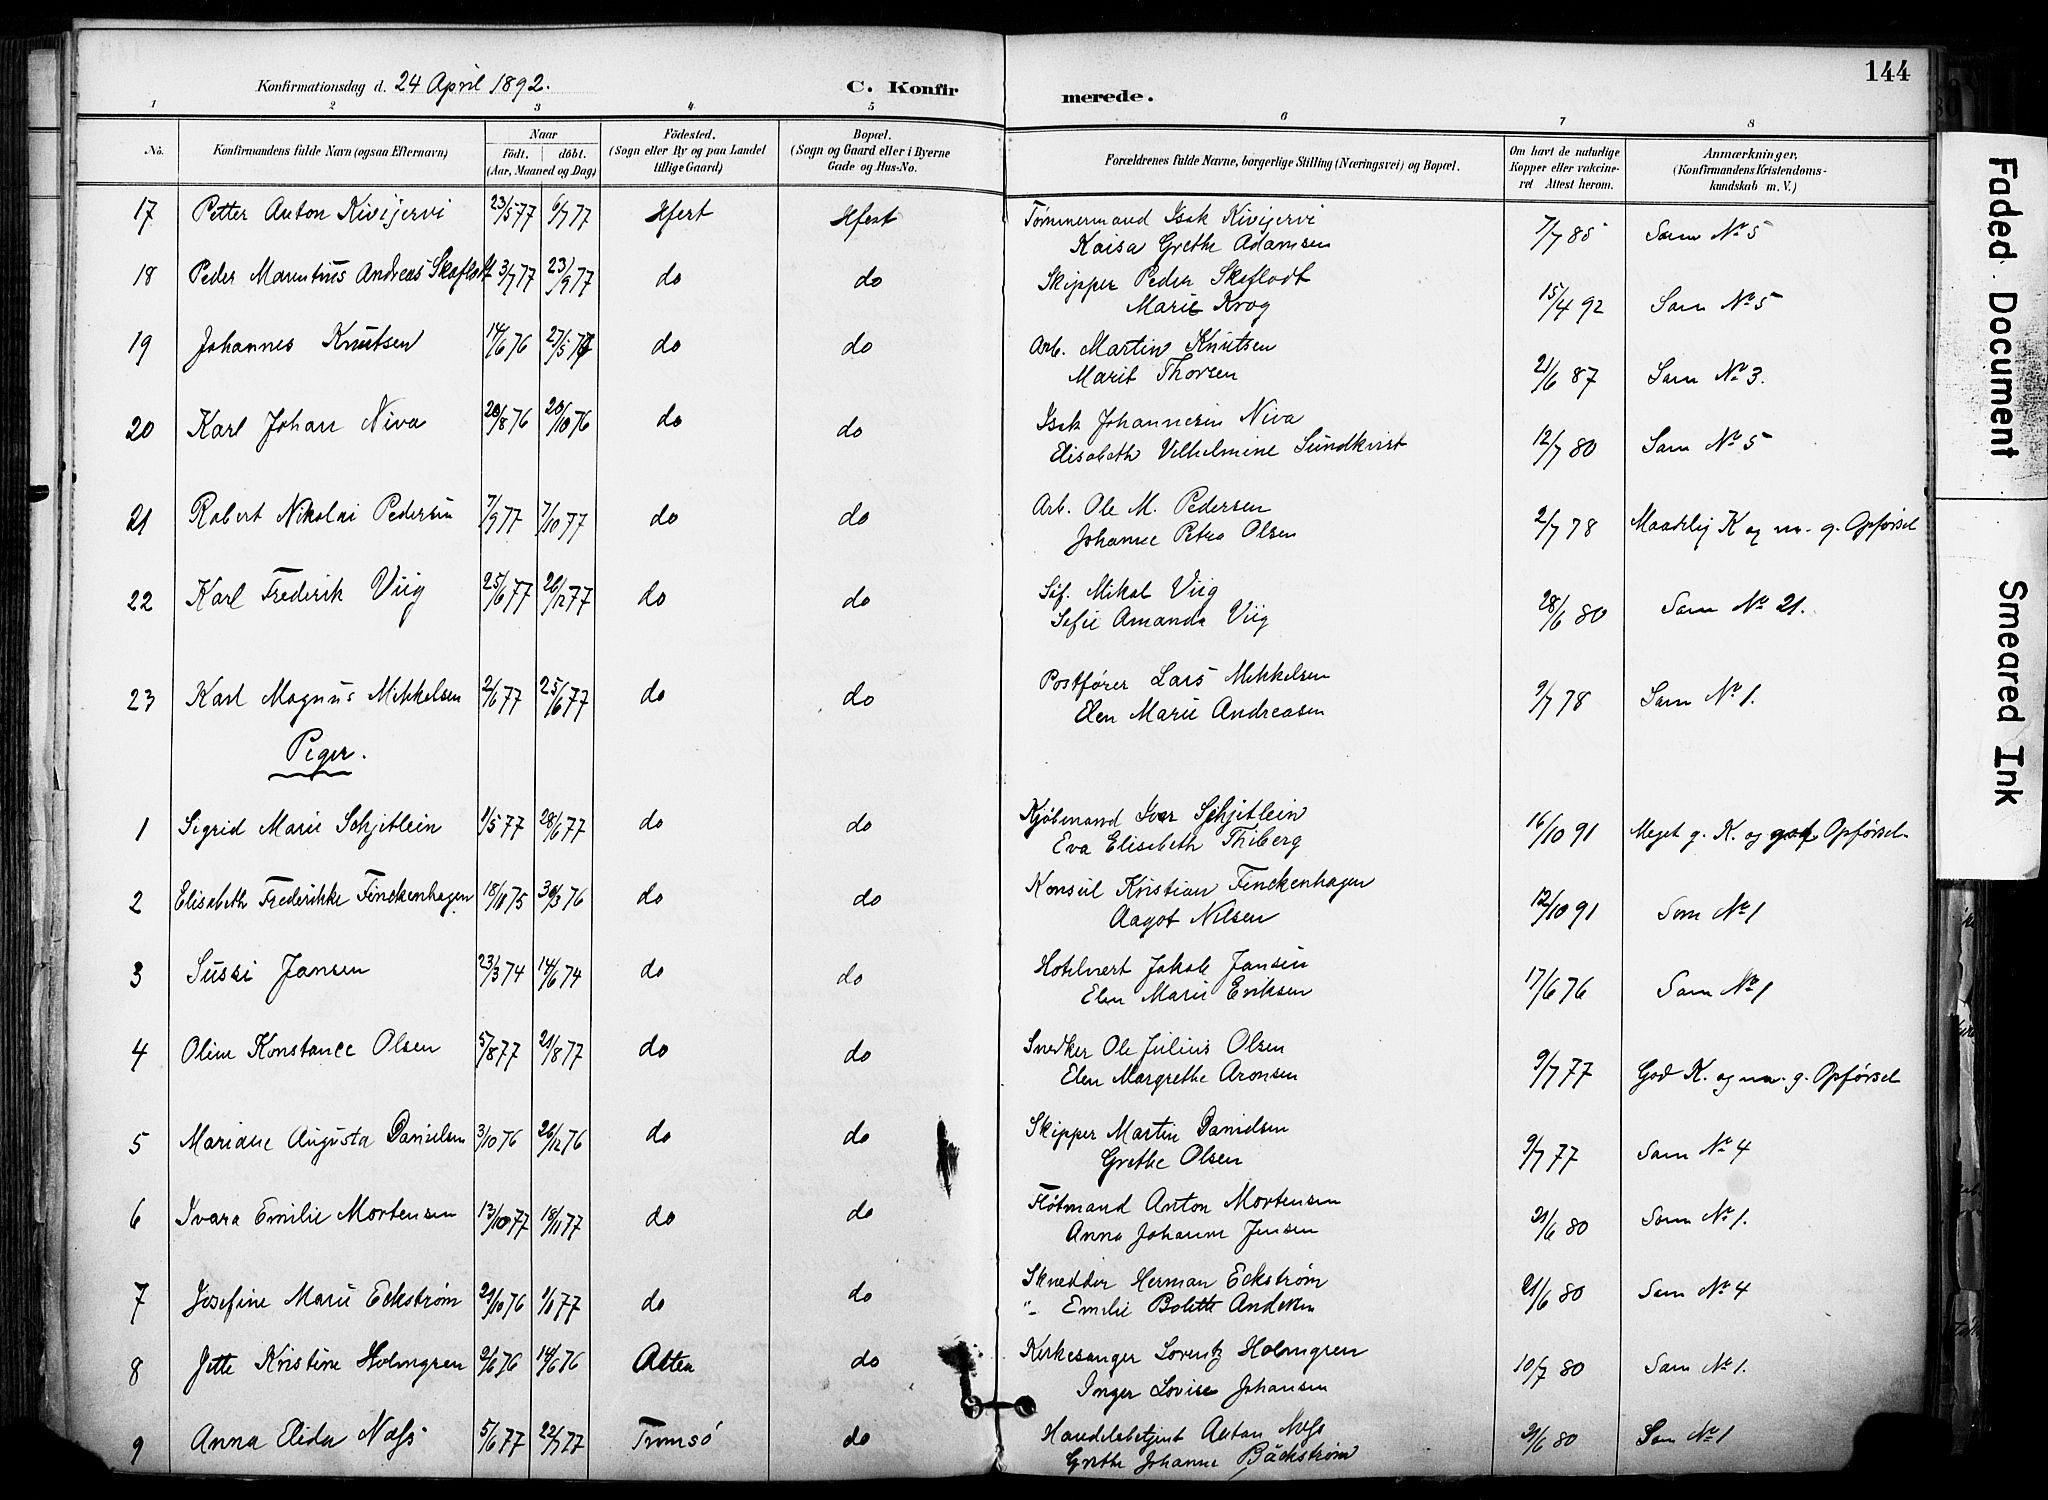 144
Konfirmationsdag d. 24 April 1892. C. Konfirmerede.
1 2 3 4 5 6 7 8
No. Konfirmandens fulde Navn (ogsaa Efternavn) Naar født. døbt. (Aar, Maaned og Dag) Fødested. (Sogn eller By og paa Landet tillige Gaard) Bopæl. (Sogn og Gaard eller i Byerne Gade og Hus-No. Forældrenes fulde Navne, borgerlige Stilling (Næringsvei) og Bopæl. Om havt de naturlige Kopper eller vakcineret Attest herom. Anmærkninger, (Konfirmandens Kristendomskundskab m. V.)
17 Petter Anton Kivijervi 23/5 77 6/7 77 Hfest Hfest Tømmermand Isak Kivijervi 7/7 85 Som No 5
Kaisa Grethe Adamsen
18 Peder Marentius Andreas Skaflodt 3/7 77 23/9 77 do do Skipper Peder Skaflodt 15/4 92 Som No 5
Marie Krog
19 Johannes Knutsen 14/6 76 27/5 77 do do Arb. Martin Knutsen 21/6 87 Som No 3.
Marit Thorsen
20 Karl Johan Niva 20/8 76 20/10 76 do do Isak Johannesen Niva 12/7 80 Som No 5
Elisabeth Vilhelmine Sundkvist
21 Robert Nikolai Pedersen 7/9 77 7/10 77 do do Arb. Ole M. Pedersen 2/7 78 Maadelig K og m. g. Opførsel
Johanne Petra Olsen
22 Karl Frederik Viig 25/6 77 26/12 77 do do Mikal Viig 28/6 80 Som No 21.
Sofie Amanda Viig
23 Karl Magnus Mikkelsen 2/6 77 25/6 77 do do Postfører Lars Mikkelsen 9/7 78 Som No 1.
Elen Marie Andreasen
Piger.
1 Sigrid Marie Schjetlein 1/5 77 28/6 77 do do Kjøbmand Ivar Schjetlein 16/10 91 Meget g. K. og god Opførsel
Eva Elisebeth Thiberg
2 Elisabeth Frederikke Finckenhagen 18/11 75 30/3 76 do do Konsul Kristian Finckenhagen 12/10 91 Som No 1
Aagot Nilsen
3 Sussi Jansen 23/3 74 14/6 74 do do Hotelvert Jakob Jansen 17/6 76 Som No 1
Elen Marie Eriksen
4 Oline Konstance Olsen 5/8 77 21/8 77 do do Snedker Ole Julius Olsen 9/7 77 God K. og m. g. Opførsel
Elen Margrethe Aronsen
5 Mariane Augusta Danielsen 3/10 76 26/12 76 do do Skipper Martin Danielsen 9/7 77 Som No 4
Grethe Olsen
6 Ivara Emilie Mortensen 13/10 77 18/11 77 do do Fløtmand Anton Mortensen 21/6 80 Som No 1.
Anna Johanne Jensen
7 Josefine Marie Eckstrøm 29/10 76 1/1 77 do do Skredder Herman Eckstrøm 21/6 80 Som No 4
"- Emilie Bolette Andersen
8 Jette Kristine Holmgren 2/6 76 14/6 76 Alten do Kirkesanger Lorentz Holmgren 10/7 80 Som No 1.
Inger Lovise Johansen
9 Anna Elida Næss 5/6 77 22/7 77 Tromsö do Handelsbetjent Anton Næss 21/6 80 Som No 1
Grethe Johanne Bäckstrøm
Faded Document
Smeared Ink